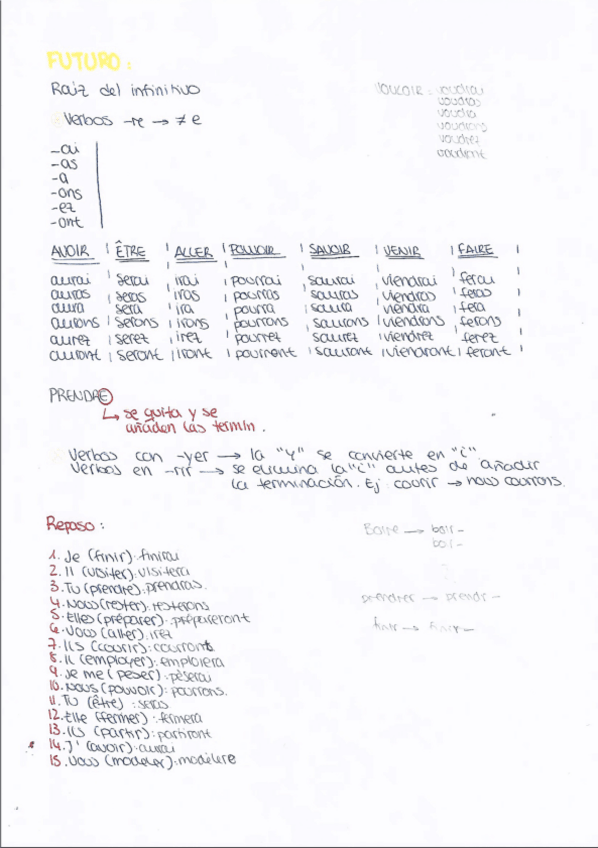 FUTURO:
Raiz del infinitivo
Verbos -re → ≠ e
-ai
-as
-a
-ons
-ez
-ont
VOULOIR: voudrai
voudras
voudra
voudrons
voudrez
voudront
AVOIR ÊTRE ALLER POUVOIR SAVOIR VENIR FAIRE
aurai serai irai pourrai saurai viendrai ferai
auras seras iras pourras sauras viendras feras
aura sera ira pourra saura viendra fera
aurons serons irons pourrons saurons viendrons ferons
aurez serez irez pourrez saurez viendrez ferez
auront seront iront pourront sauront viendront feront
PRENDRE
↳ se quita y se
añaden las termin.
Verbos con -yer → la "y" se convierte en "i"
Verbos en -rir → se elimina la "i" antes de añadir
la terminación. Ej: courir → nous courrons.
Repaso:
1. Je (finir): finirai
2. Il (visiter): visitera
3. Tu (prendre): prendras.
4. Nous (rester): resterons
5. Elles (préparer): prépareront
6. Vous (aller): irez
7. Ils (courir): courront
8. Il (employer): emploiera
9. Je me (peser): pèserai
10. Nous (pouvoir): pourrons.
11. Tu (être): seras
12. Elle (fermer): fermera
13. Ils (partir): partiront
14. J' (avoir): aurai
15. Vous (modeler): modèlere
Boire → boir-
boi-
prendrer → prendr-
finir → finir-